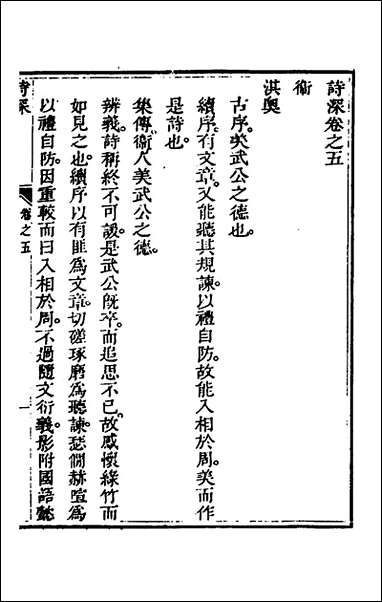 詩深卷之五
衛
淇奥
古序美武公之德也
續序有文章又能聽其規諫以禮自防故能入相於周美而作
是詩也
集傳衛人美武公之德
辨義詩稱終不可諼是武公旣卒而追思不已故感懷綠竹而
如見之也續序以有匪爲文章切磋琢磨爲聽諫瑟僩赫喧爲
以禮自防因重較而曰入相於周不過隨文衍義影附國語懿
詩深
卷之五
一